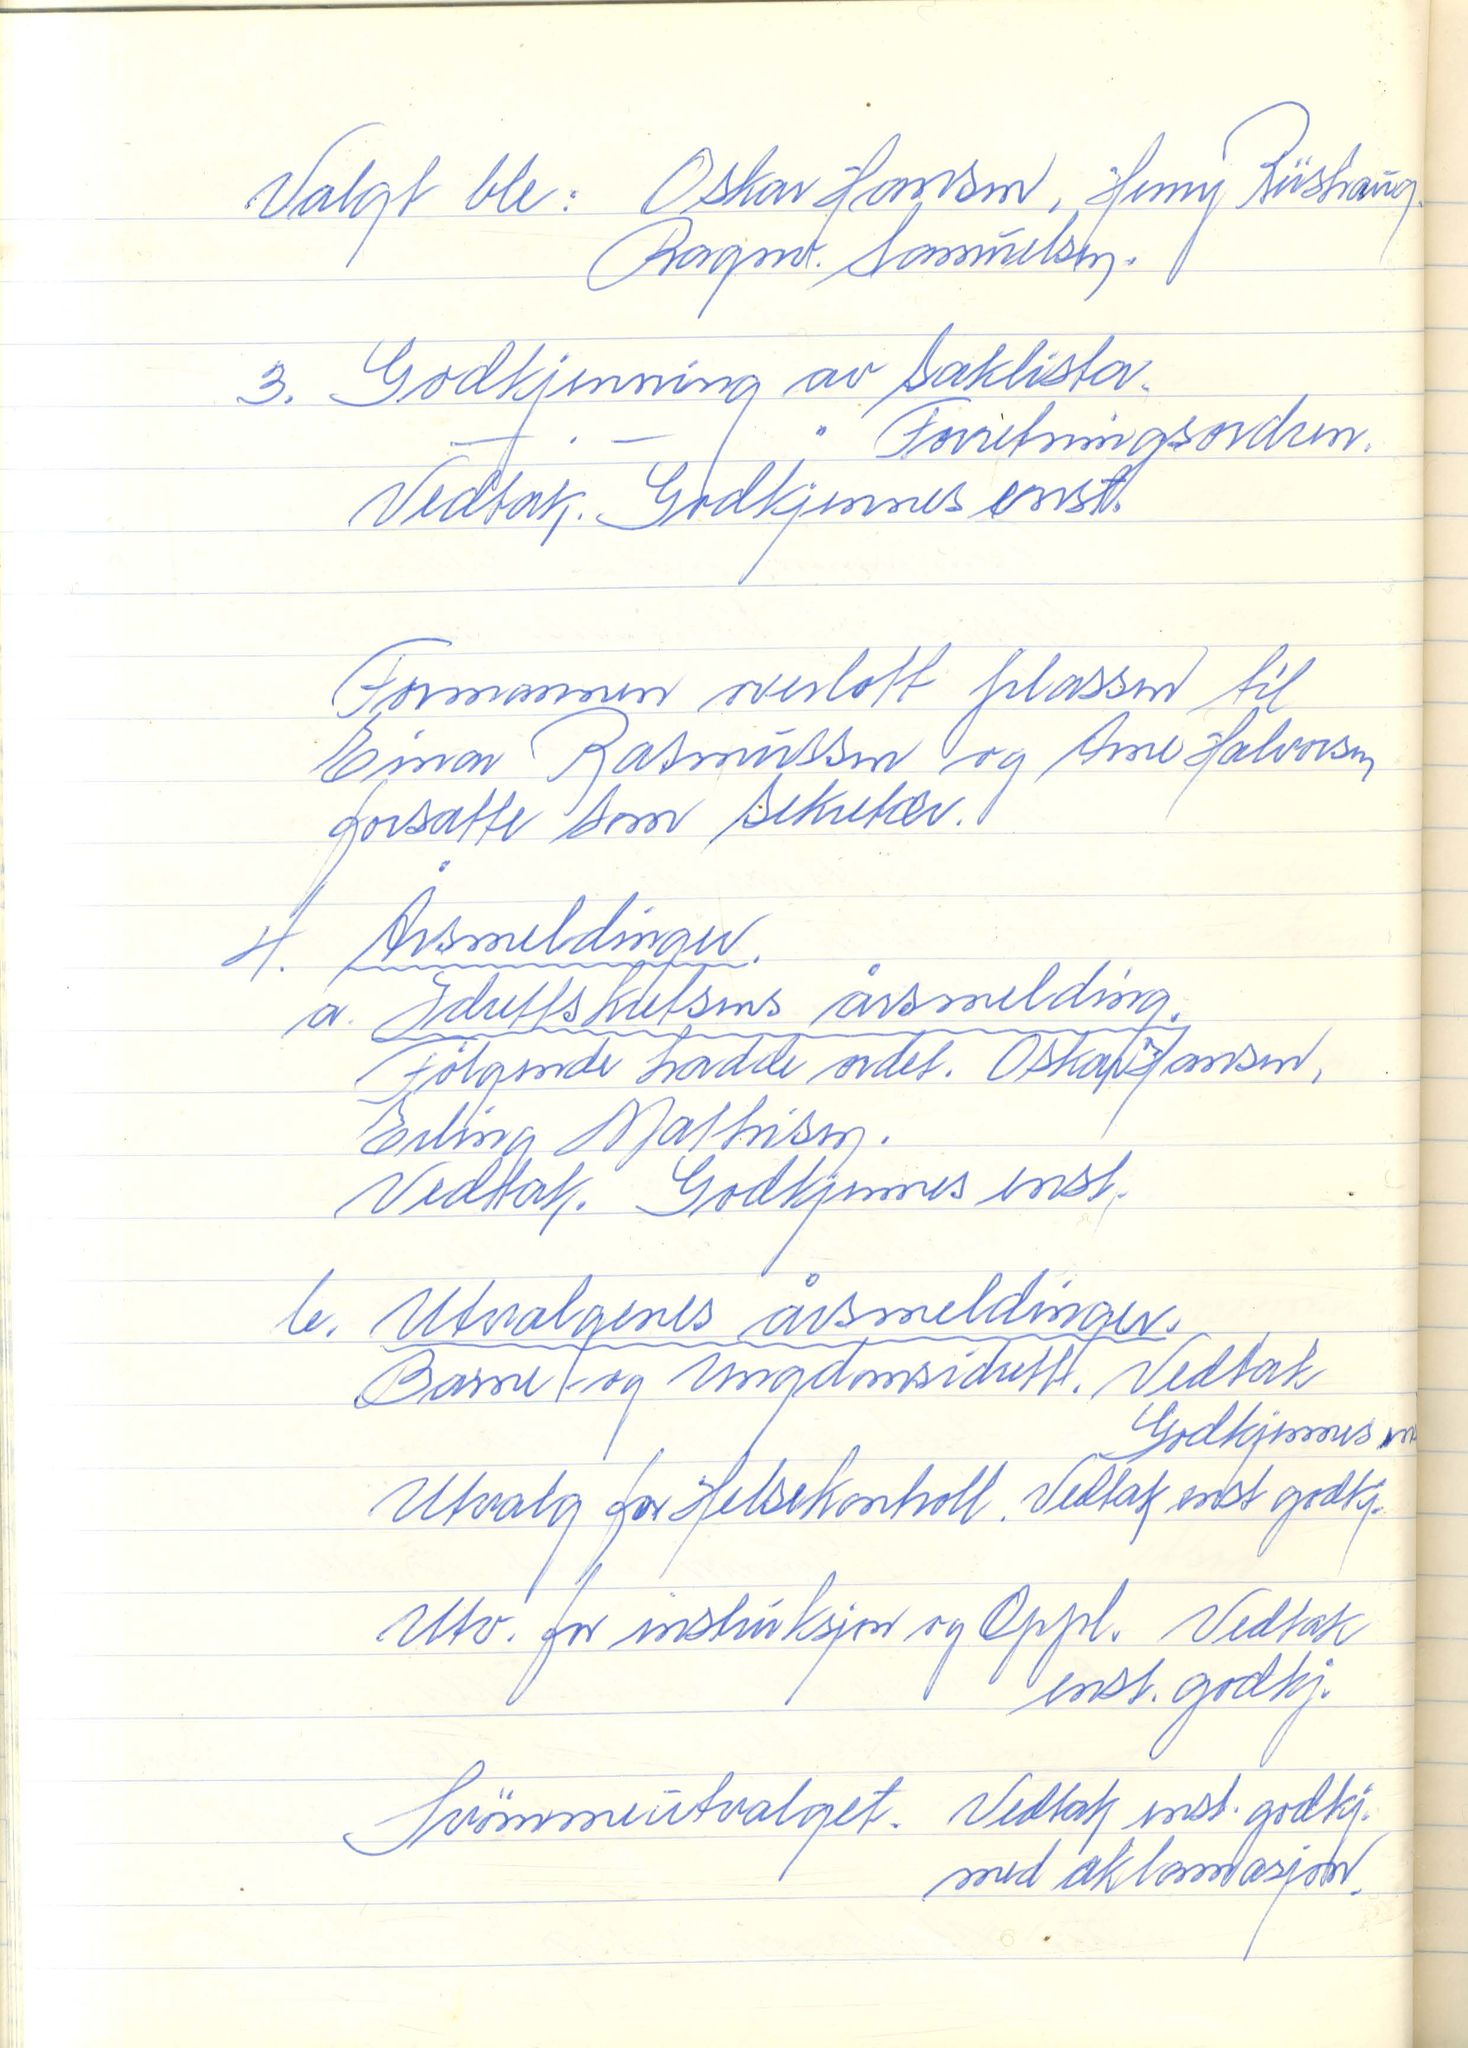 Valgt ble: Oskar Hansen, Henry
Ragnv. Samuelsen.
3. Godkjenning av Saklista.
— " — " Forretningsordren.
Vedtak. Godkjennes enst.
Formannen overlott plassen til
Einar Rasmussen og Arne Halvorsen
forsatte som sekretær.
4. Årsmeldinger.
a. Idrettskretsens årsmelding.
Følgende hadde ordet. Oskar Hansen,
Erling Mathisen.
Vedtak. Godkjennes enst.
b. Utvalgenes årsmeldinger.
Barne- og Ungdomsidrett. Vedtak
Godkjennes
Utvalg for Helsekontroll. Vedtak enst godkj.
Utv. for instruksjon og Oppl. Vedtak
enst. godkj.
Svömmeutvalget. Vedtak enst. godkj.
med aklamasjon.